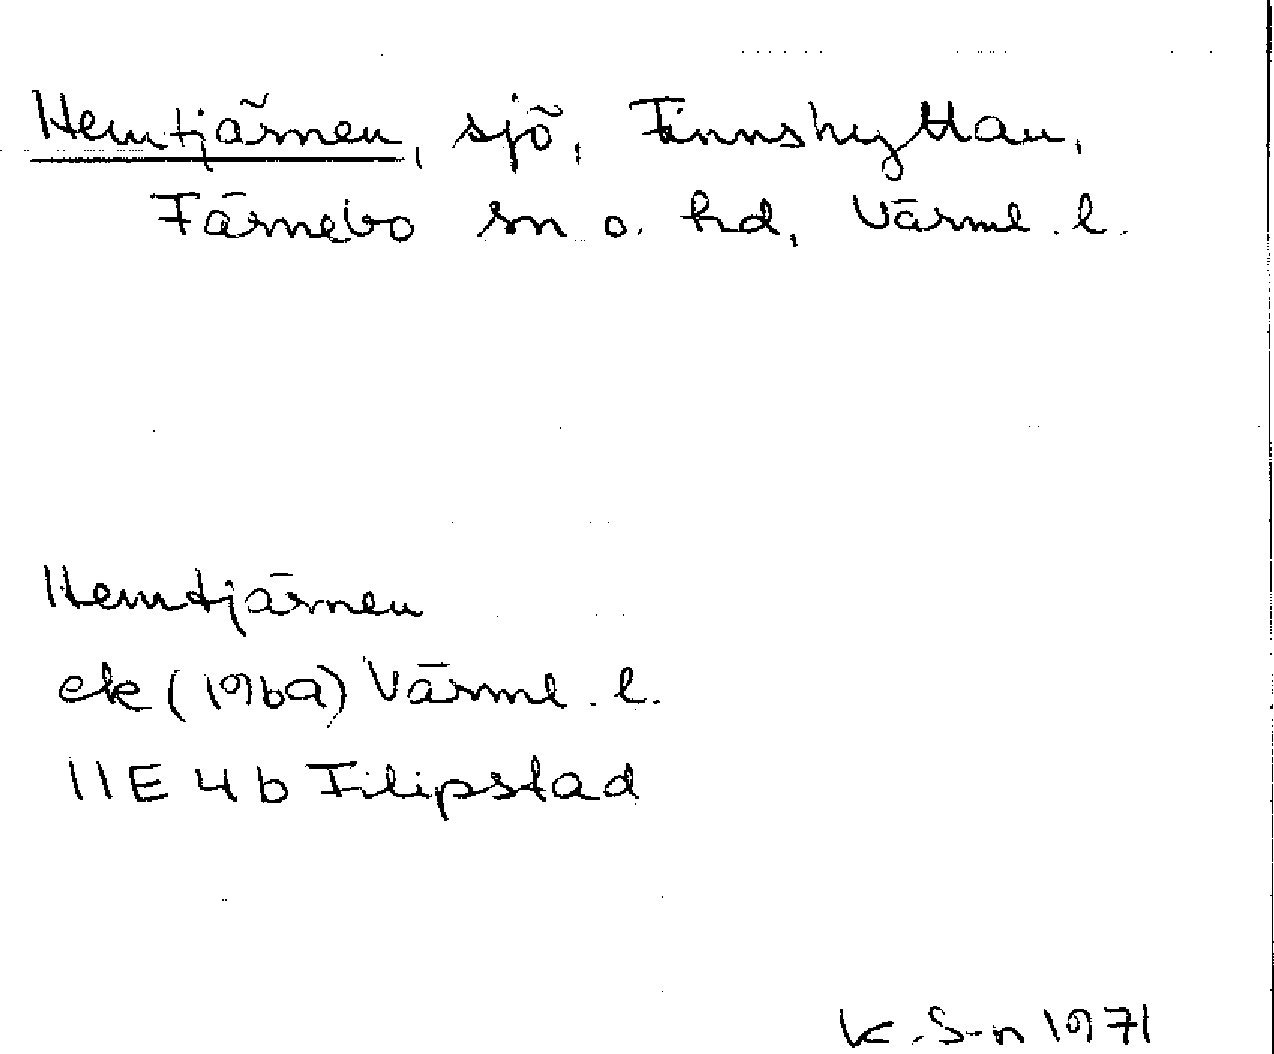 Hemtjärnen, sjö, Finnshyttan,
Färnebo sn o. hd, Värml. l.
Hemtjärnen
ek (1969) Värml. l.
11E 4b Filipstad
K. S-n 1971